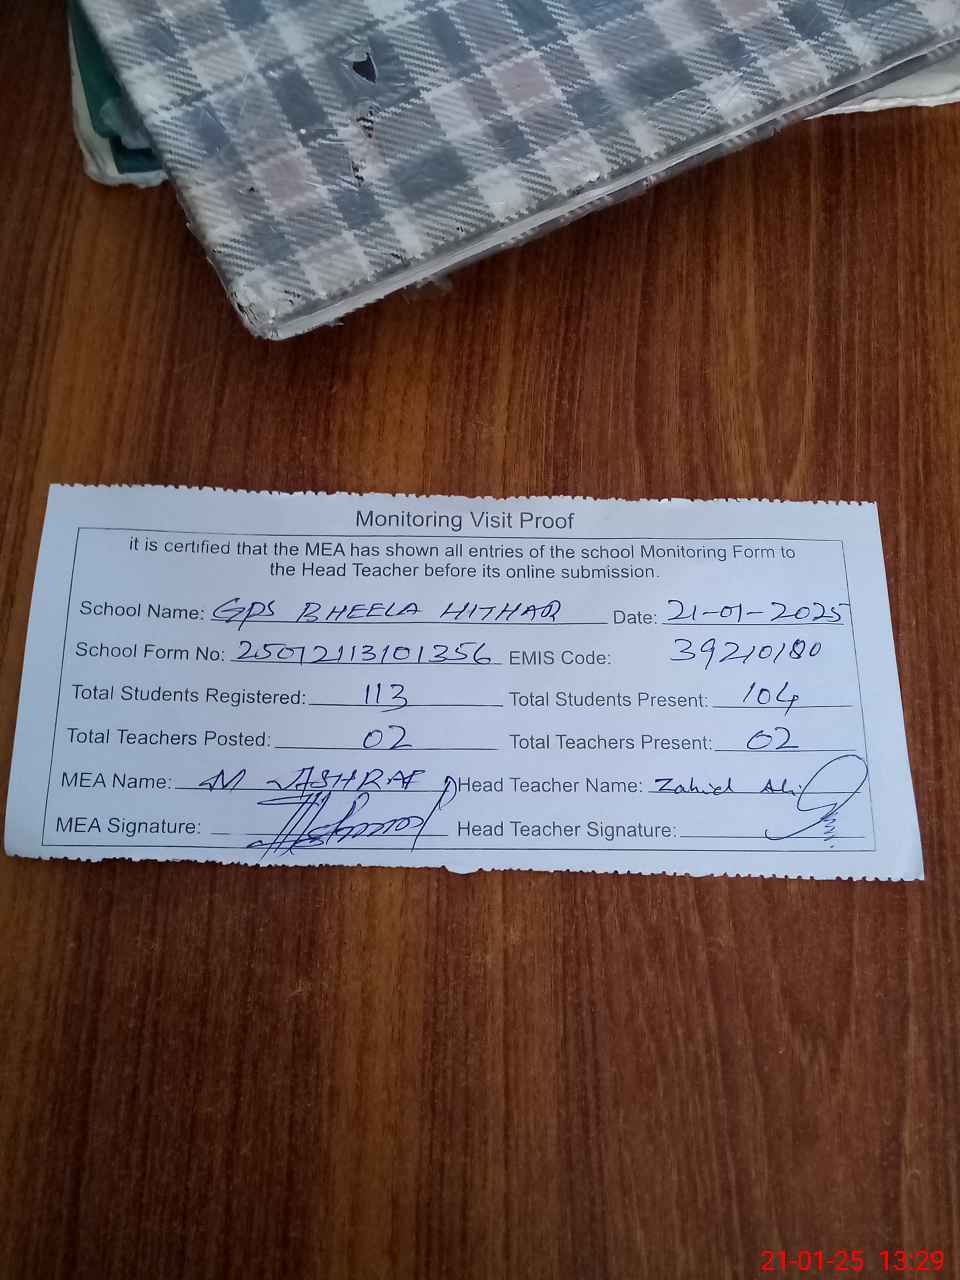 Monitoring Visit Proof
it is certified that the MEA has shown all entries of the school Monitoring Form to
the Head Teacher before its online submission.
School Name: GPS BHEELA HITHAR Date: 21-01-2025
School Form No: 25012113101356 EMIS Code: 39210180
Total Students Registered: 113 Total Students Present: 104
Total Teachers Posted: 02 Total Teachers Present: 02
MEA Name: M ASHRAF Head Teacher Name: Zahid Ali
MEA Signature: Head Teacher Signature:
21-01-25 13:29